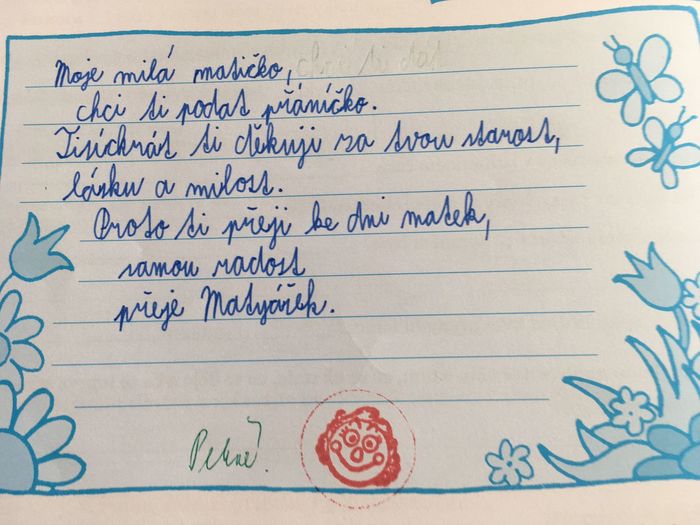 Moje milá matičko, chci ti dát
chci ti podat přáníčko.
Tisíckrát ti děkuji za tvou starost,
lásku a milost.
Proto ti přeji ke dni matek,
samou radost
přeje Matyášek.
Pekně!